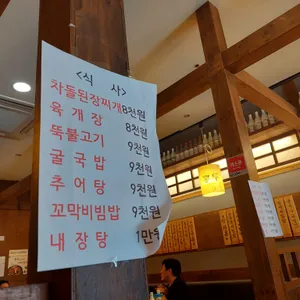 <식 사>
차돌된장찌개 8천원
육 개 장 8천원
뚝불고기 9천원
굴 국 밥 9천원
추 어 탕 9천원
꼬막비빔밥 9천원
내 장 탕 1만